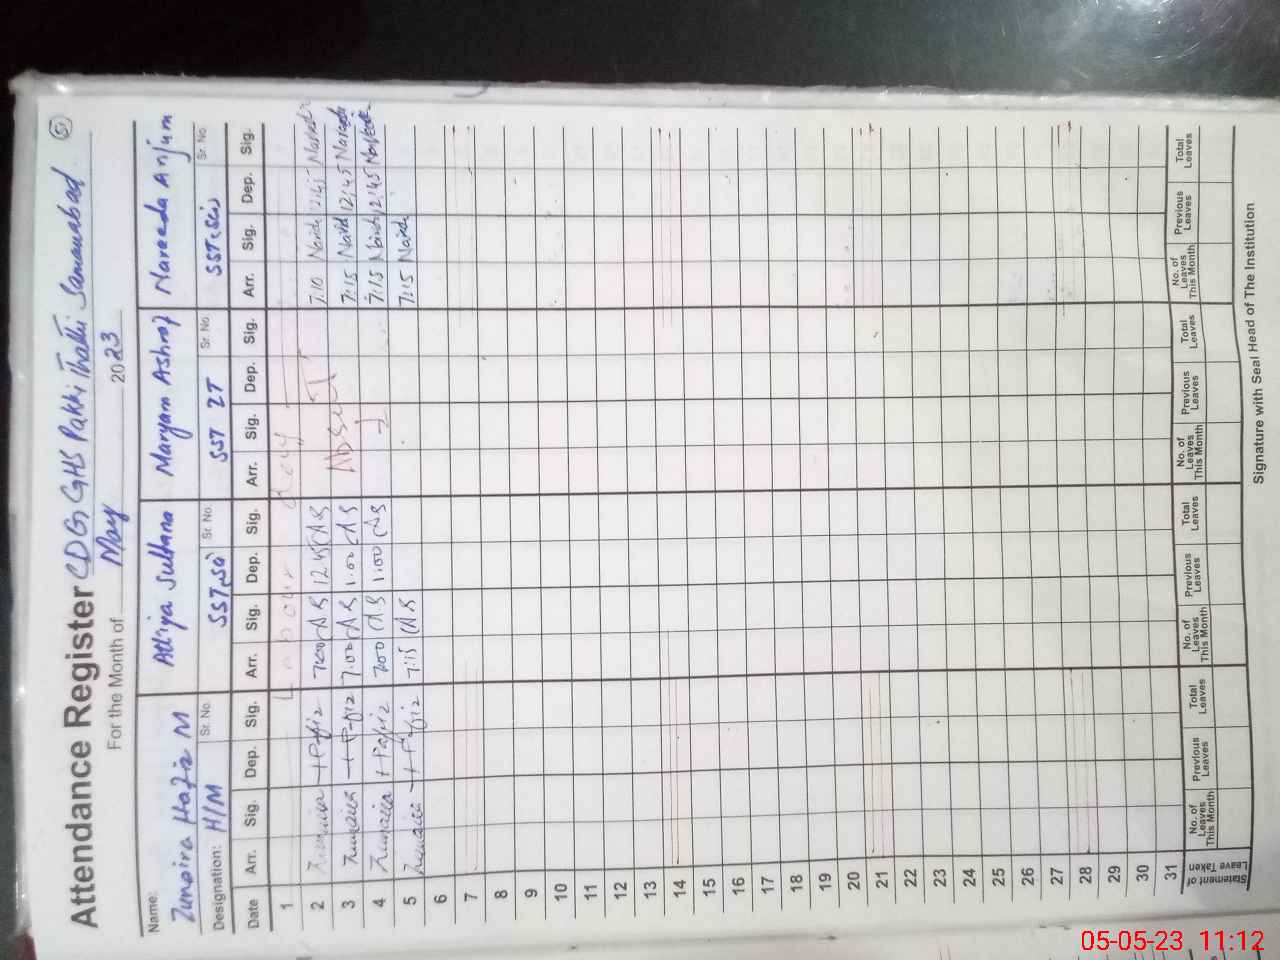 Attendance Register CDG GHS Pakki Thatti Samanabad 51
For the Month of May 2023
Name: Zunaira Hafiz M Attiya Sultana Maryam Ashraf Naveeda Anjum
Designation: H/M Sr. No. SST,Sci Sr. No. SST IT Sr. No. SST,Sci Sr. No.
Date Arr. Sig. Dep. Sig. Arr. Sig. Dep. Sig. Arr. Sig. Dep. Sig. Arr. Sig. Dep. Sig.
1 Labour day
2 Zunaira Hafiz 7:00 AS 12:45 AS 7:10 12:45
3 Zunaira Hafiz 7:00 AS 1:00 AS Absent 7:15 12:45
4 Zunaira Hafiz 7:00 AS 1:00 AS 7:15 12:45
5 Zunaira Hafiz 7:15 AS 7:15
6
7
8
9
10
11
12
13
14
15
16
17
18
19
20
21
22
23
24
25
26
27
28
29
30
31
Statement of Leave Taken No. of Leaves This Month Previous Leaves Total Leaves No. of Leaves This Month Previous Leaves Total Leaves No. of Leaves This Month Previous Leaves Total Leaves No. of Leaves This Month Previous Leaves Total Leaves
Signature with Seal Head of The Institution
05-05-23 11:12